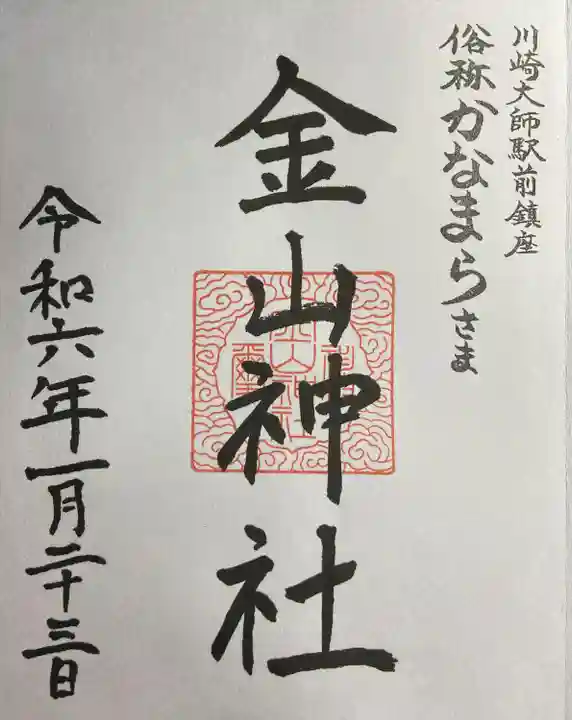 川崎大師駅前鎮座
俗称かなまらさま
金山神社
令和六年一月二十三日